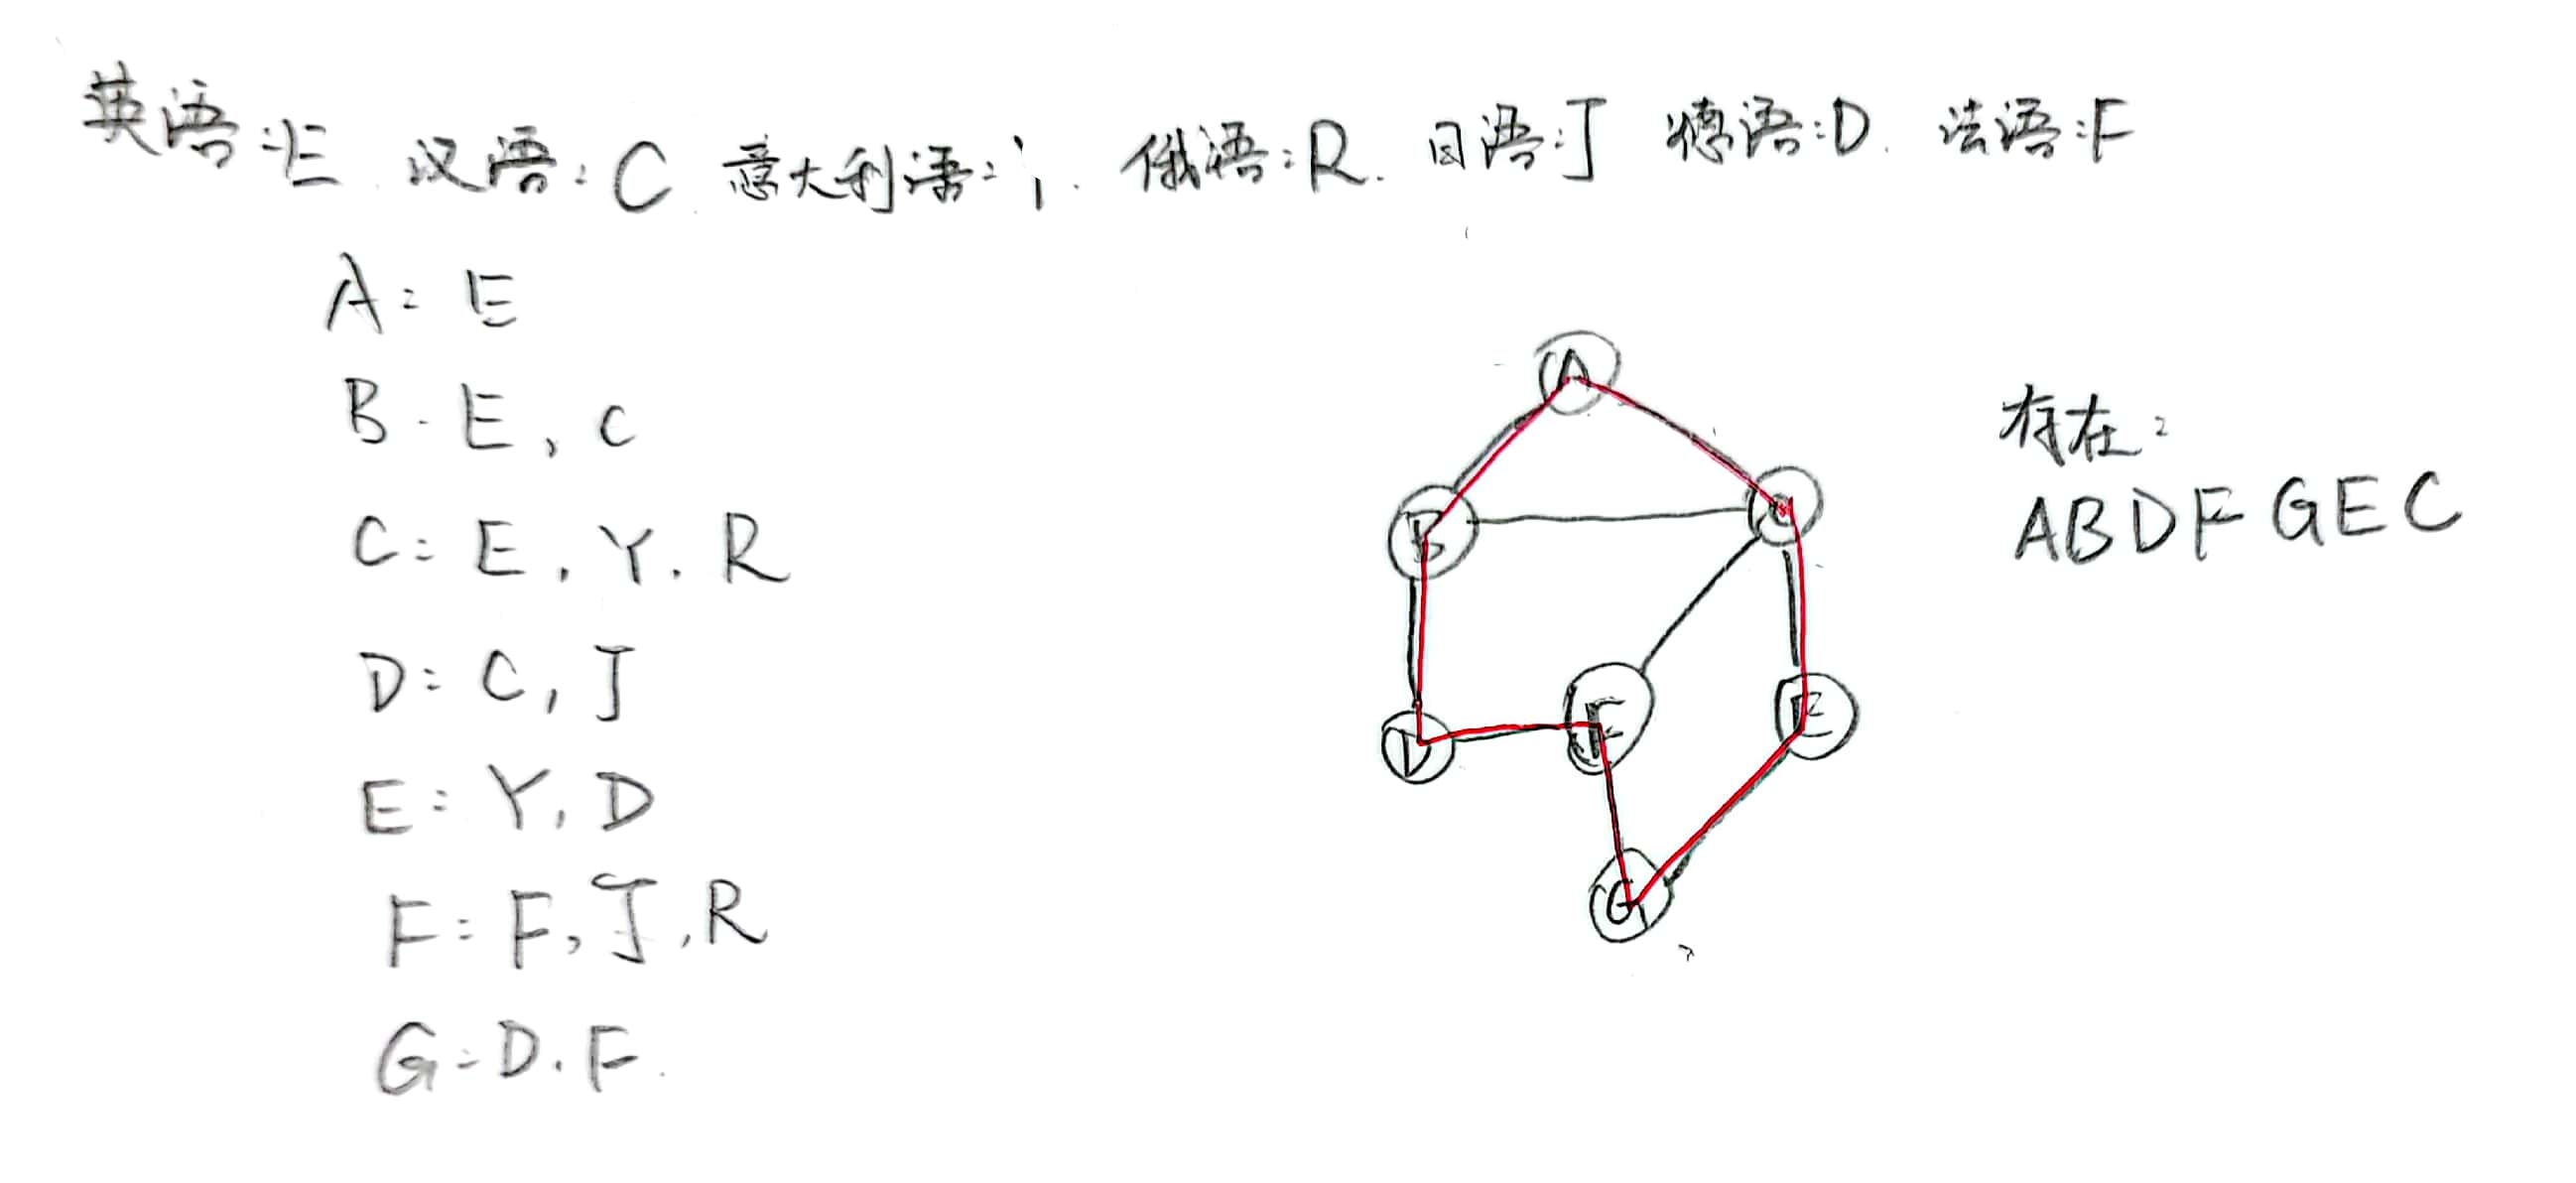 英语:E 汉语:C 意大利语:i. 俄语:R. 日语:J 德语:D. 法语:F
A: E
B. E, C
C: E, Y. R
D: C, J
E: Y, D
F: F, J, R
G: D. F.
A
B
C
D
F
E
G
存在:
ABDFGEC